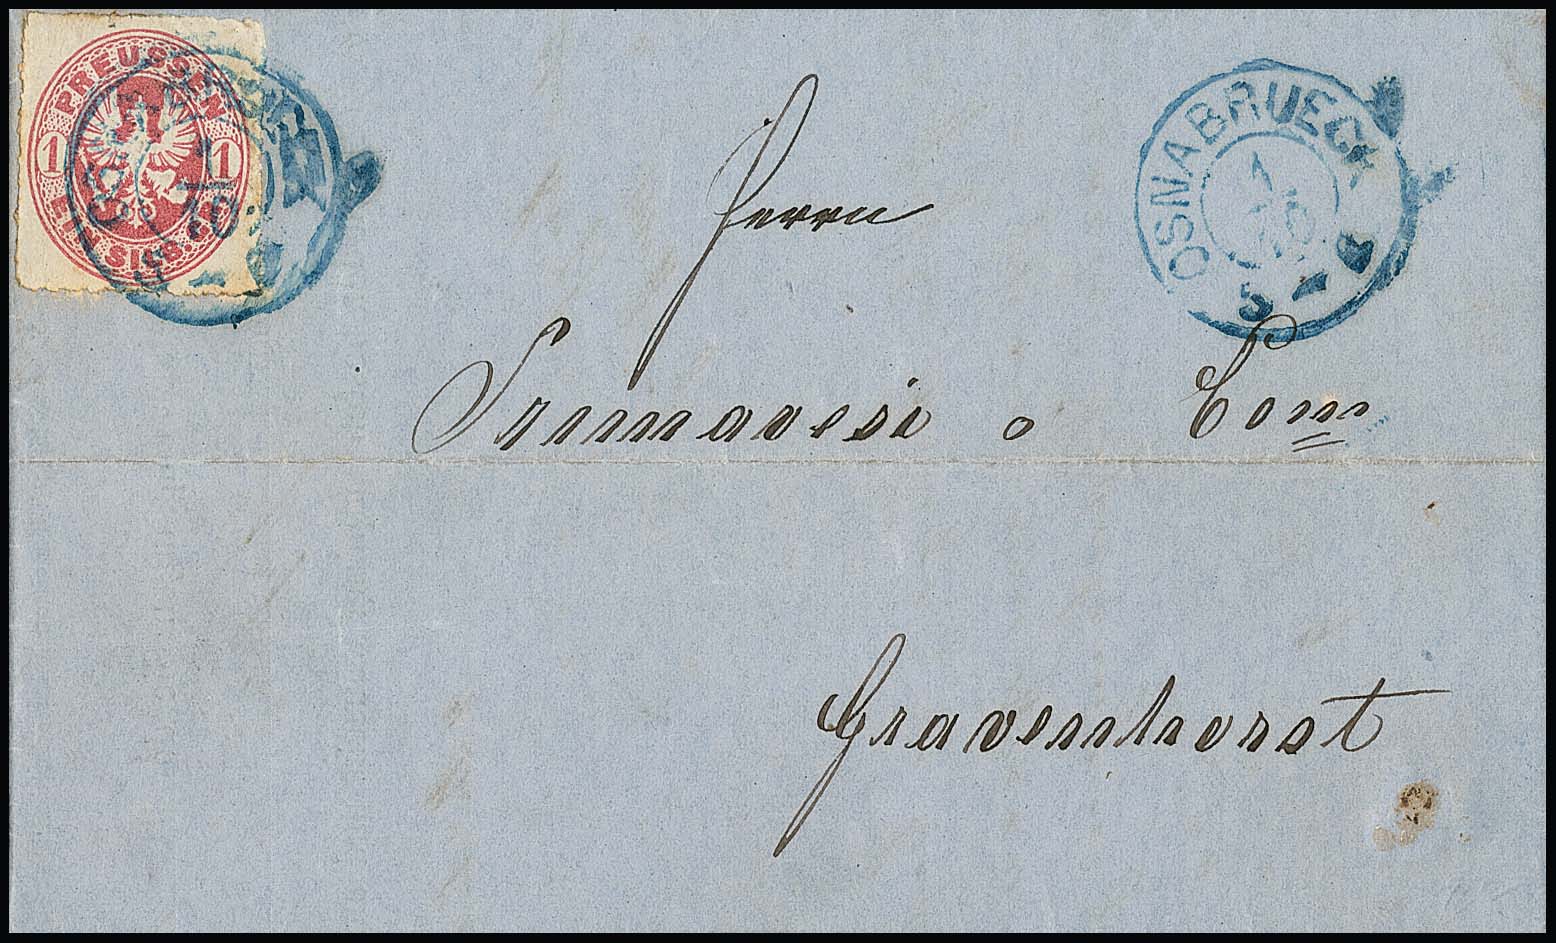 PREUSSEN
1 1
EIN SILB. GR.
OSNABRUECK
1
10
5 - 6
Herrn
Primavesi o Com
Gravenhorst